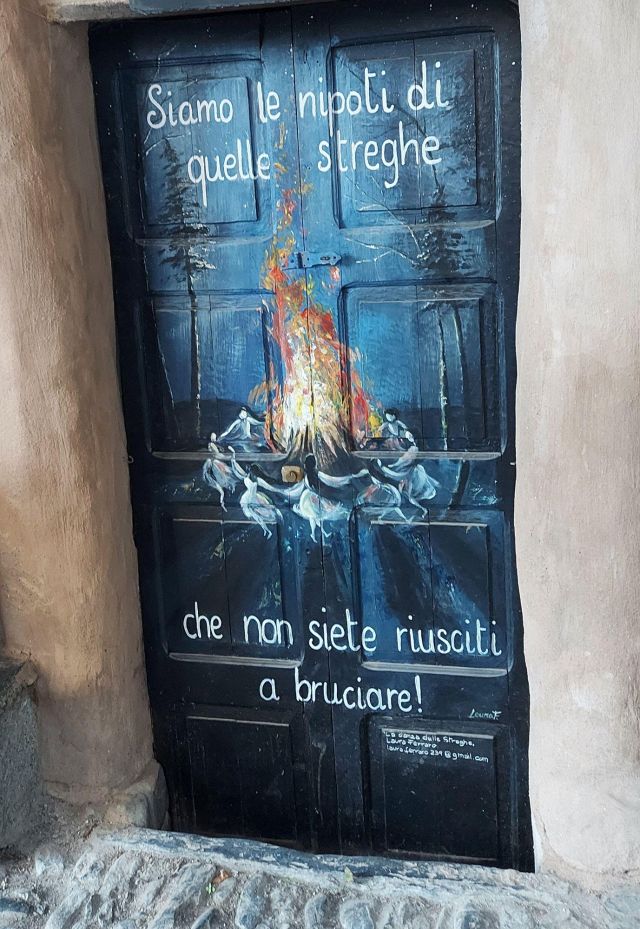 Siamo le nipoti di
quelle streghe
che non siete riusciti
a bruciare!
Laura F.
La danza delle Streghe,
Laura Ferraro
laura.ferraro239@gmail.com